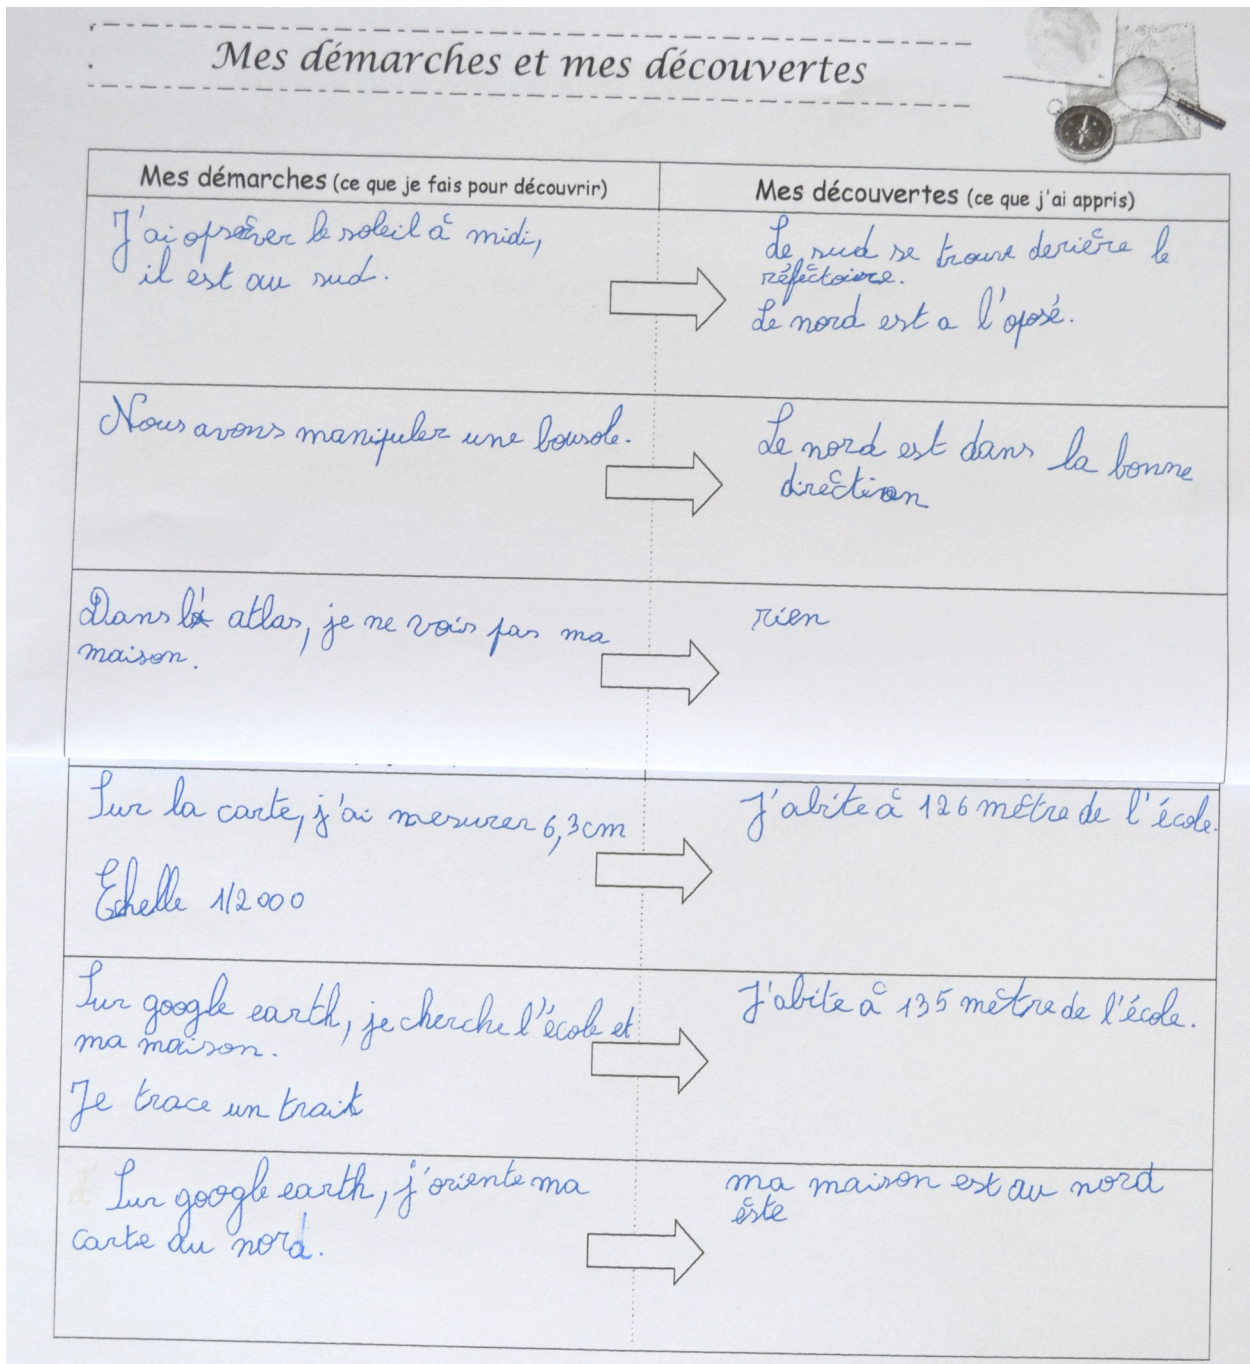 Mes démarches et mes découvertes
Mes démarches (ce que je fais pour découvrir)
Mes découvertes (ce que j'ai appris)
J'ai opsèrver le soleil à midi,
il est au sud.
Le sud se trouve derière le
réfèctoire.
Le nord est a l'oposé.
Nous avons manipuler une bousole.
Le nord est dans la bonne
direction
Dans l' atlas, je ne vois pas ma
maison.
rien
Sur la carte, j'ai mesurer 6,3cm
Echelle 1/2000
J'abite à 126 mètre de l'école.
Sur google earth, je cherche l'école et
ma maison.
Je trace un trait
J'abite à 135 mètre de l'école.
Sur google earth, j'oriente ma
carte au nord.
ma maison est au nord
èste